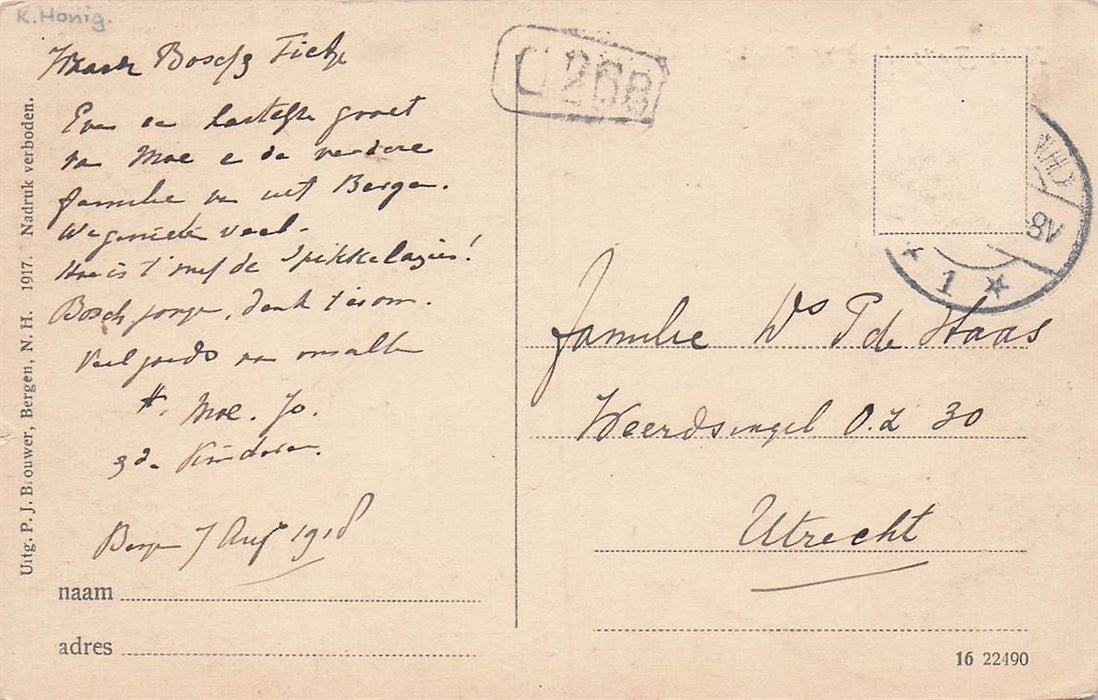 K. Honig.
Bosch Fietje
Even en hartelijke groet
van Moe en de verdere
familie van uit Bergen.
We genieten veel.
Hoe is 't met de Spikkelazies!
Bosch jonge, denk 't erom.
Veel goeds van ons alle
H. Moe. Jo.
Kinderen.
Bergen 7 Aug 1918
naam
adres
Uitg. P. J. Brouwer, Bergen, N. H. 1917. Nadruk verboden.
268
(N.H.)
8V
1
Familie Ws P de Haas
Weerdsingel O.Z 30
Utrecht
16 22490